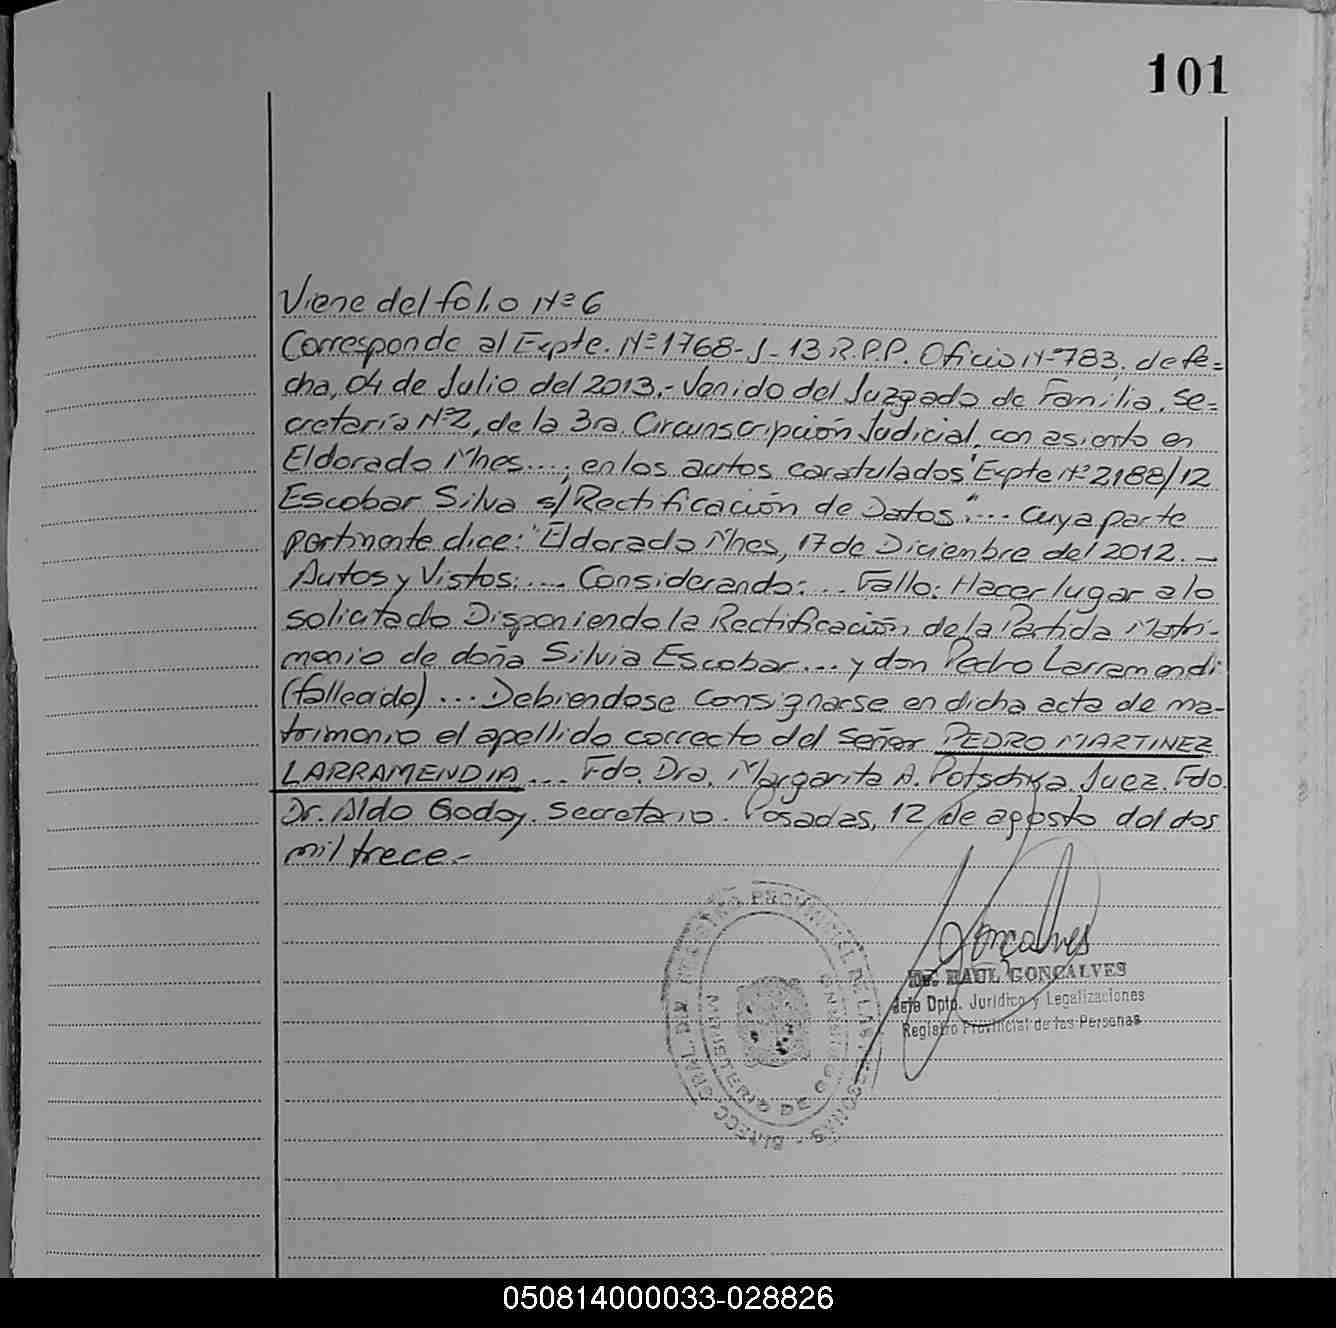 101
Viene del folio Nº 6
Corresponde al Expte. Nº 1768-J-13 R.P.P. Oficio Nº 783, de fe=
cha, 04 de Julio del 2013.- Venido del Juzgado de Familia, Se=
cretaría Nº 2, de la 3ra. Circunscripción Judicial, con asiento en
Eldorado Mnes...; en los autos caratulados "Expte Nº 2188/12
Escobar Silva s/Rectificación de Datos"... cuya parte
pertinente dice: "Eldorado Mnes, 17 de Diciembre del 2012.-
Autos y Vistos:.... Considerando:... Fallo: Hacer lugar a lo
solicitado Disponiendo la Rectificación, de la Partida Matri-
monio de doña Silvia Escobar... y don Pedro Larramendi
(fallecido)... Debiendose consignarse en dicha acta de ma-
trimonio el apellido correcto del señor PEDRO MARTINEZ
LARRAMENDIA... Fdo. Dra. Margarita A. Potschka. Juez. Fdo.
Dr. Aldo Godoy. Secretario. Posadas, 12 de agosto del dos
mil trece.-
Goncalves
Dr. RAUL GONCALVES
Jefe Dpto. Jurídico y Legalizaciones
Registro Provincial de las Personas
050814000033-028826